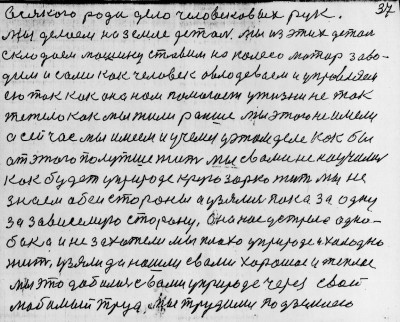 37
Всякого рода дело человековых рук.
Мы делаем на земле детал. Мы из этих детал
складаем машину ставим на колесо мотар заво-
дим и сами как человек овлодеваем и управледи
ею так как она нам помогает у жизни не так
тежело как мы жили раньше мы этого не имели
а сейчас мы имеем и учемси у этом деле как бы
от этого получше жить мы с вами не научимси
как будет у природе круго зорко жить мы не
знаем а беи стороны а узяли пока за одну
за зависемую сторану. Она нас устрие одно-
бака и не захотели мы плохо у природе и халодно
жить, узяли да нашли с вами хорошае и теплае
мы это дабилис с вами у природе через свой
любимый труд. Мы трудилис по земному